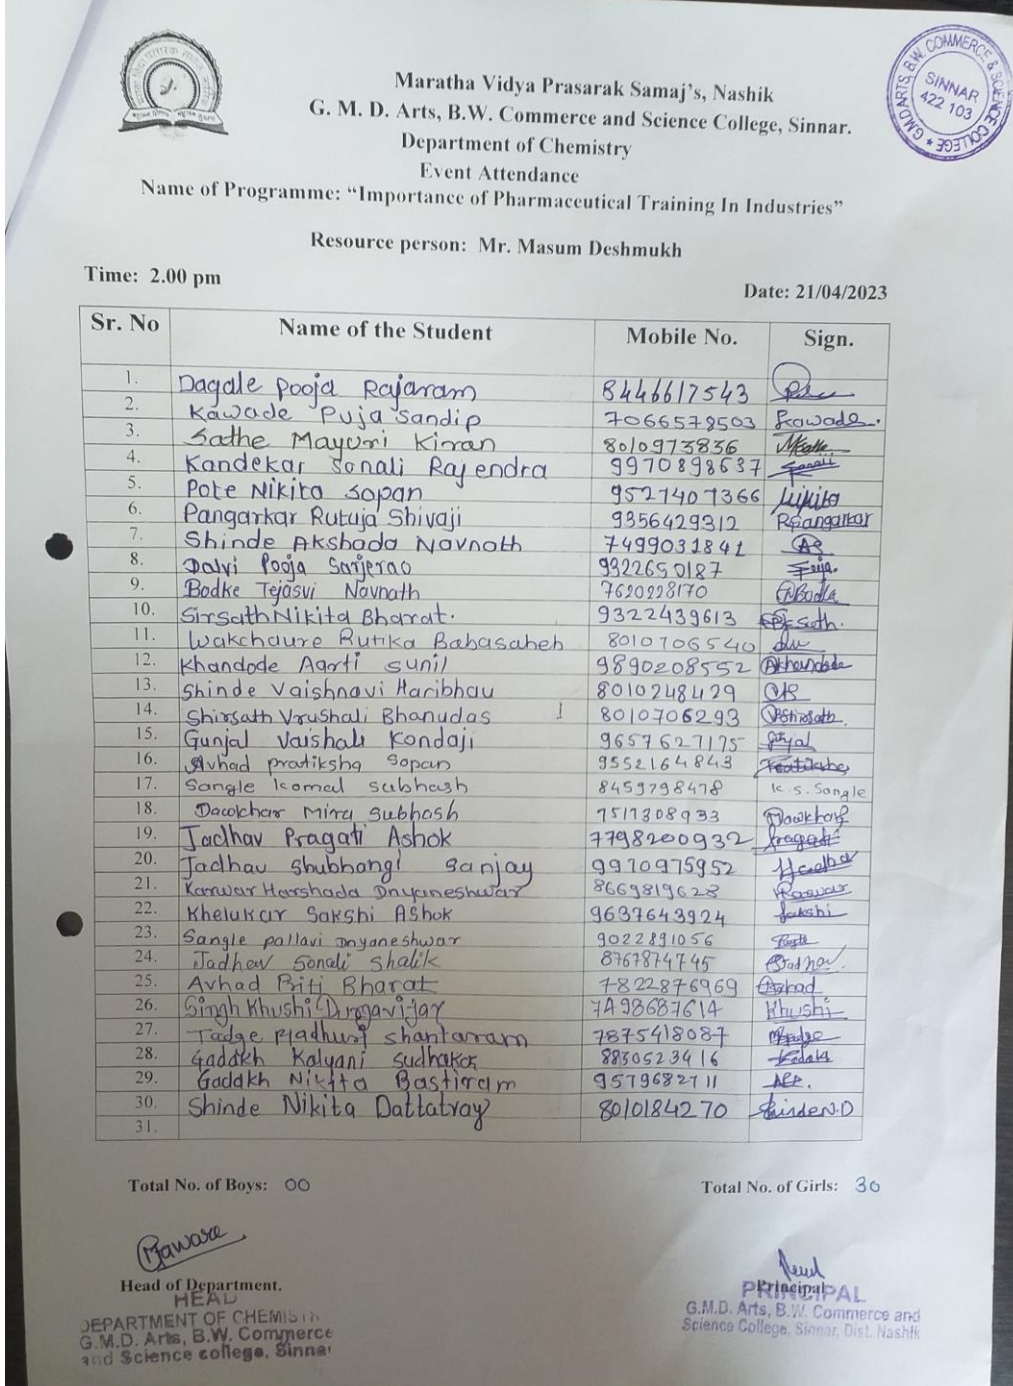 Maratha Vidya Prasarak Samaj's, Nashik
G. M. D. Arts, B.W. Commerce and Science College, Sinnar.
Department of Chemistry
Event Attendance
Name of Programme: “Importance of Pharmaceutical Training In Industries”
Resource person: Mr. Masum Deshmukh
Time: 2.00 pm
Date: 21/04/2023
G.M.D ARTS, B.W. COMMERCE & SCIENCE COLLEGE ★
SINNAR
422 103
Sr. No Name of the Student Mobile No. Sign.
1. Dagale Pooja Rajaram 8446617543
2. Kawade Puja Sandip 7066578503 Kawade.
3. Sathe Mayuri Kiran 8010973836
4. Kandekar Sonali Rajendra 9970898637
5. Pote Nikita Sopan 9527407366 Nikita
6. Pangarkar Rutuja Shivaji 9356429312 Rpangarkar
7. Shinde Akshada Navnath 7499031841
8. Dalvi Pooja Sarjerao 9322650187
9. Bodke Tejasvi Navnath 7620228170
10. Sirsath Nikita Bharat. 9322439613
11. Wakchaure Rutika Babasaheb 8010706540
12. Khandode Aarti sunil 9890208552
13. Shinde Vaishnavi Haribhau 8010248429
14. Shirsath Vrushali Bhanudas 8010706293
15. Gunjal Vaishali Kondaji 9657627175
16. Avhad pratiksha Sopan 9552164843
17. Sangle Komal subhash 8459798478 K.S. Sangle
18. Dawkhar Mira Subhash 7517308933
19. Jadhav Pragati Ashok 7798200932 Pragati
20. Jadhav Shubhangi Sanjay 9970975952
21. Kanwar Harshada Dnyaneshwar 8669819628
22. Khelukar Sakshi Ashok 9637643924 Sakshi
23. Sangle pallavi Dnyaneshwar 9022891056
24. Jadhav Sonali Shalik 8767874745 Jadhav.
25. Avhad Priti Bharat 7822876969 Avhad
26. Singh Khushi Durgavijay 7498687614 Khushi
27. Tadge Madhuri Shantaram 7875418087
28. Gadakh Kalyani Sudhakar 8830523416
29. Gadakh Nikita Bastiram 9579682711
30. Shinde Nikita Dattatray 8010184270 Shinde N.D
31.
Total No. of Boys: 00
Total No. of Girls: 30
Head of Department.
HEAD
DEPARTMENT OF CHEMIST
G.M.D. Arts, B.W. Commerce
and Science college, Sinnar
Principal
PRINCIPAL
G.M.D. Arts, B.W. Commerce and
Science College, Sinnar, Dist. Nashik